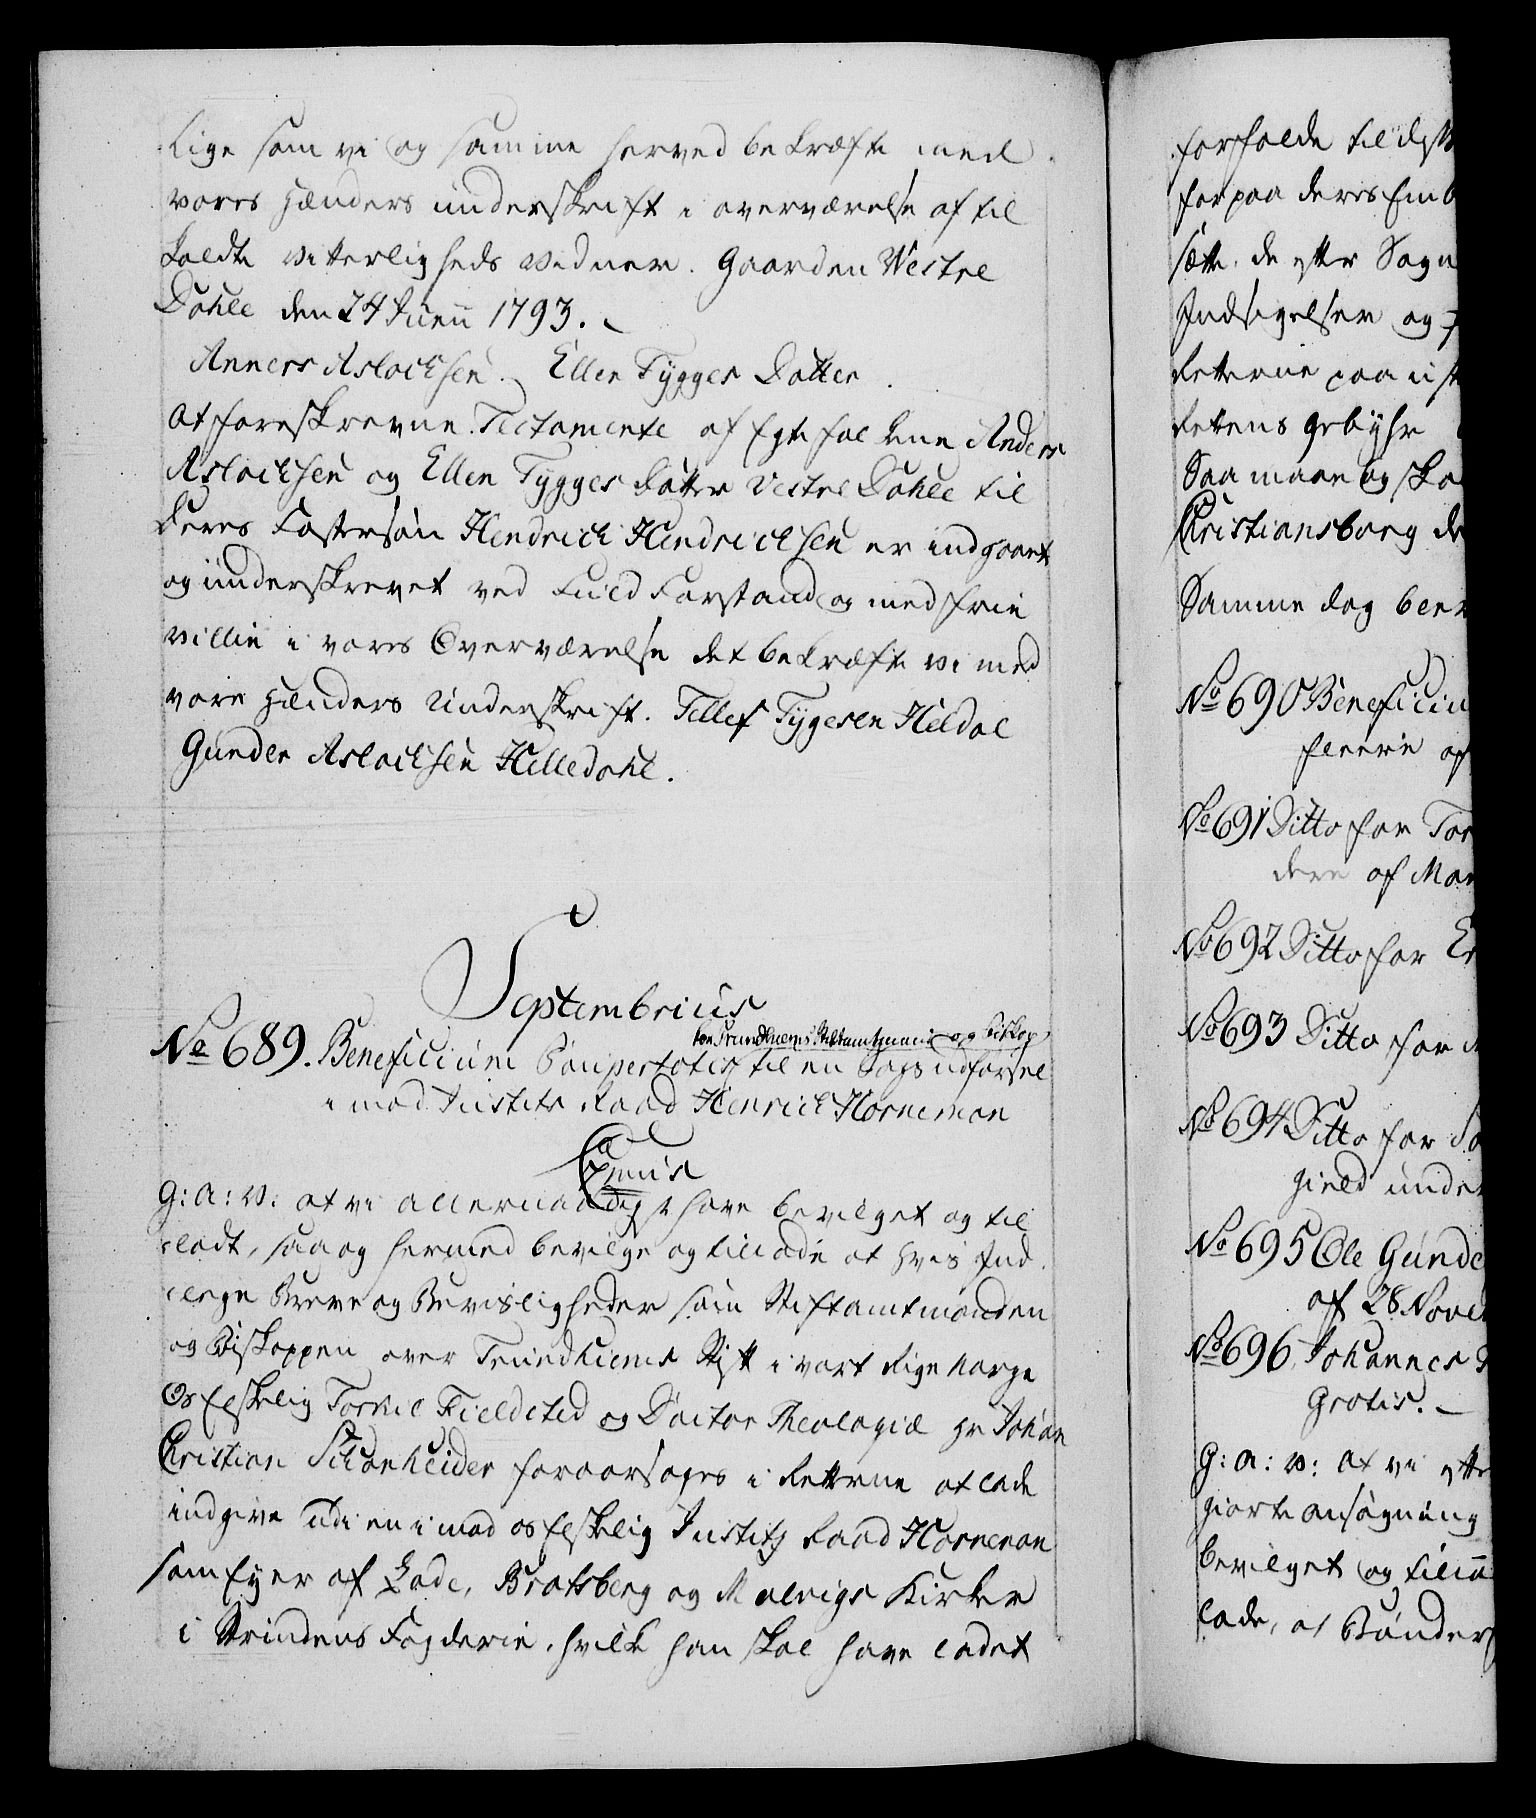 Lige som vi og samme herved bekræfte med
vores Hænders underskrift i overværelse af til
kaldte vitterligheds vidner. Gaarden Westre
Dahle den 24 Juny 1793.
Anners Aslachsen. Ellen Tygges Datter.
At foreskrevne Testamente af Egtefolkene Anders
Aslachsen og Ellen Tygges Datter Vestre Dahle til
deres Fostersøn Hendrich Hendrichsen er indgaaet
og underskrevet ved Fuld Forstand og med frie
villie i vores Overværelse det bekræfte vi med
vore Hænders Underskrift. Tellef Tygesen Heldal
Gunder Aslachsen Helledahl.
Septembrius
for Trundhiems Stiftamtmand og Biskop
No 689. Beneficium Paupertatis til en Sags udførsel
imod Justits Raad Henrich Horneman
G: A: V: at vi allernaadigst have bevilget og til
ladt, saa og hermed bevilge og tillade at hvis Ind
læge Breve og Bevisligheder som Stiftamtmanden
og Biskoppen over Trundhiems Stift i vort Rige Norge
Os Elskelig Torkel Fieldsted og Doctor Theologiæ Hr Johan
Christian Schønheider foraarsages i Retterne at lade
indgive udi en imod os Elskelig Justitz Raad Horneman
som Eyer af Lade, Bratsberg og Malvigs Kirker
i Strindens Fogderie, hvilke han skal have ladet
forholde til dette
for paa deres Emb
sætte, de efter Sagn
Indsigelser og
Retterne paa
Rettens Gebyhr
Saa maae og ska
Christiansborg de
Samme dag ble
No 690 Beneficiu
fleere af
No 691 Ditto for Tor
dere af Man
No 692 Ditto for Er
No 693 Ditto for
No 694 Ditto for So
gield under
No 695 Ole Gunde
af 28 Nove
No 696 Johannes
Gratis.
G: A: V: at vi efte
giorte ansøgning
bevilget og till
lade, at Bønder